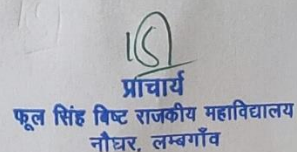 प्राचार्य
फूल सिंह बिष्ट राजकीय महाविद्यालय
नौघर, लम्बगाँव